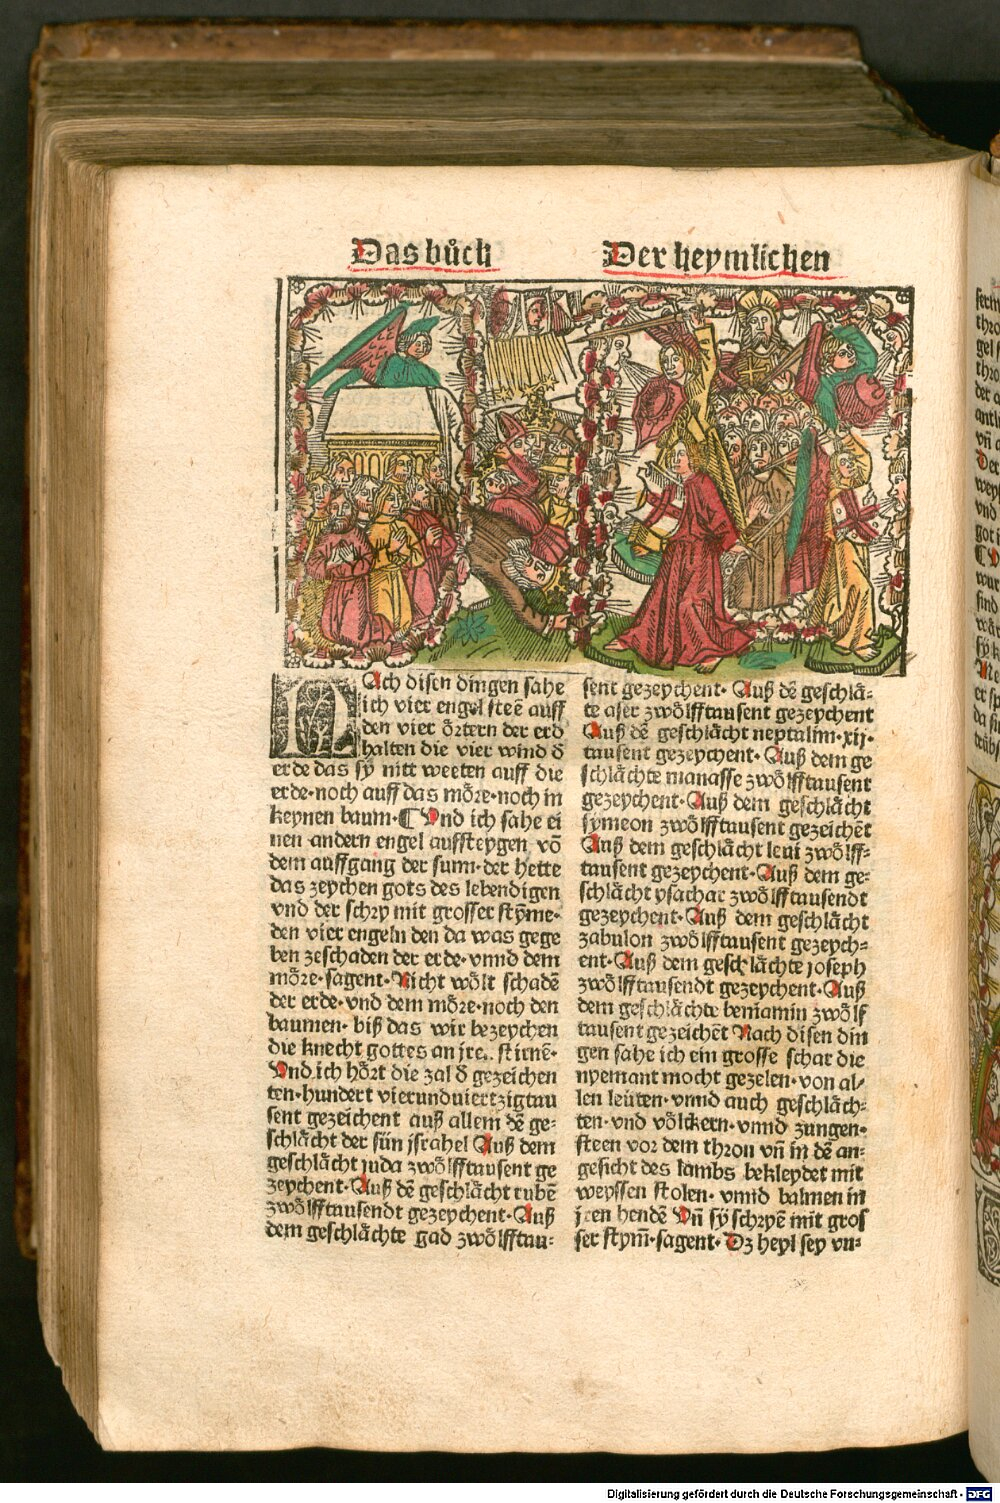 Das bůch
Der heymlichen
NAch disen dingen sahe
ich vier engel steē auff
den vier oͤrtern der erd
halten die vier wind d̄
erde das sy nitt weeten auff die
erde·noch auff das moͤre·noch in
keynen baum·¶ Vnd ich sahe ei
nen andern engel auffsteygen vō
dem auffgang der sunn·der hette
das zeychen gots des lebendigen
vnd der schry mit grosser stȳme·
den vier engeln den da was gege
ben zeschaden der erde·vnnd dem
moͤre·sagent·Nicht woͤlt schadē
der erde·vnd dem moͤre·noch den
baumen· biß das wir bezeychen
die knecht gottes an jren stirnē·
Vnd ich hoͤrt die zal d̄ gezeichen
ten·hundert vierundviertzigtau
sent gezeichent auß allem dē ge⸗
schlaͤcht der sún jsrahel Auß dem
geschlaͤcht juda zwoͤlfftausent ge
zeychent·Auß dē geschlaͤcht rubē
zwoͤlfftausendt gezeychent·Auß
dem geschlaͤchte gad zwoͤlfftau⸗
sent gezeychent· Auß dē geschlaͤ⸗
te aser zwoͤlfftausent gezeychent
Auß dē geschlaͤcht neptalim·xij·
tausent gezeychent· Auß dem ge
schlaͤchte manasse zwoͤlfftausent
gezeychent·Auß dem geschlaͤcht
symeon zwoͤlfftausent gezeichēt
Auß dem geschlaͤcht leui zwoͤlff⸗
tausent gezeychent·Auß dem ge⸗
schlaͤcht ysachar zwoͤlfftausendt
gezeychent·Auß dem geschlaͤcht
zabulon zwoͤlfftausent gezeych⸗
ent·Auß dem geschlaͤchte joseph
zwoͤlfftausendt gezeychent·Auß
dem geschlaͤchte beniamin zwoͤlf
tausent gezeichēt Nach disen din
gen sahe ich ein grosse schar die
nyemant mocht gezelen·von al⸗
len leúten·vnnd auch geschlaͤch⸗
ten·vnd voͤlckern·vnnd zungen·
steen vor dem thron vn̄ in dē an⸗
gesicht des lambs bekleydet mit
weyssen stolen·vnnd balmen in
jren hendē Vn̄ sy schryē mit gros
ser stym̄·sagent· Dz heyl sey vn⸗
Digitalisierung gefördert durch die Deutsche Forschungsgemeinschaft - DFG